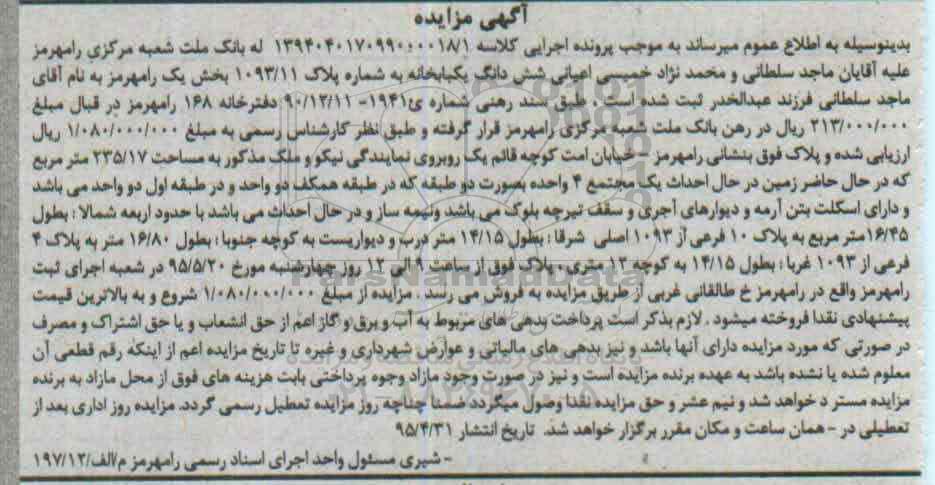 آگهی مزایده
بدینوسیله به اطلاع عموم میرساند به موجب پرونده اجرایی کلاسه ۱۳۹۴۰۴۰۱۷۰۹۹۰۰۰۰۱۸/۱ له بانک ملت شعبه مرکزی رامهرمز
علیه آقایان ماجد سلطانی و محمد نژاد خمیسی اعیانی شش دانگ یکبابخانه به شماره پلاک ۱۰۹۳/۱۱ بخش یک رامهرمز به نام آقای
ماجد سلطانی فرزند عبدالخدر ثبت شده است ، طبق سند رهنی شماره ی۱۹۴۱- ۹۰/۱۲/۱۱ دفترخانه ۱۶۸ رامهرمز در قبال مبلغ
۲۱۳/۰۰۰/۰۰۰ ریال در رهن بانک ملت شعبه مرکزی رامهرمز قرار گرفته و طبق نظر کارشناس رسمی به مبلغ ۱/۰۸۰/۰۰۰/۰۰۰ ریال
ارزیابی شده و پلاک فوق بنشانی رامهرمز – خیابان امت کوچه قائم یک روبروی نمایندگی نیکو و ملک مذکور به مساحت ۲۳۵/۱۷ متر مربع
که در حال حاضر زمین در حال احداث یک مجتمع ۴ واحده بصورت دو طبقه که در طبقه همکف دو واحد و در طبقه اول دو واحد می باشد
و دارای اسکلت بتن آرمه و دیوارهای آجری و سقف تیرچه بلوک می باشد ونیمه ساز و در حال احداث می باشد با حدود اربعه شمالا : بطول
۱۶/۴۵متر مربع به پلاک ۱۰ فرعی از ۱۰۹۳ اصلی شرقا : بطول ۱۴/۱۵ متر درب و دیواریست به کوچه جنوبا : بطول ۱۶/۸۰ متر به پلاک ۴
فرعی از ۱۰۹۳ غربا : بطول ۱۴/۱۵ به کوچه ۱۲ متری . پلاک فوق از ساعت ۹ الی ۱۲ روز چهارشنبه مورخ ۹۵/۵/۲۰ در شعبه اجرای ثبت
رامهرمز واقع در رامهرمز خ طالقانی غربی از طریق مزایده به فروش می رسد . مزایده از مبلغ ۱/۰۸۰/۰۰۰/۰۰۰ شروع و به بالاترین قیمت
پیشنهادی نقدا فروخته میشود . لازم بذکر است پرداخت بدهی های مربوط به آب و برق و گاز اعم از حق انشعاب و یا حق اشتراک و مصرف
در صورتی که مورد مزایده دارای آنها باشد و نیز بدهی های مالیاتی و عوارض شهرداری و غیره تا تاریخ مزایده اعم از اینکه رقم قطعی آن
معلوم شده یا نشده باشد به عهده برنده مزایده است و نیز در صورت وجود مازاد وجوه پرداختی بابت هزینه های فوق از محل مازاد به برنده
مزایده مستر د خواهد شد و نیم عشر و حق مزایده نقدا وصول میگردد ضمنا چناچه روز مزایده تعطیل رسمی گردد. مزایده روز اداری بعد از
تعطیلی در – همان ساعت و مکان مقرر برگزار خواهد شد. تاریخ انتشار ۹۵/۴/۳۱
- شیری مسئول واحد اجرای اسناد رسمی رامهرمز م/الف/۱۹۷/۱۲
ParsNamadData